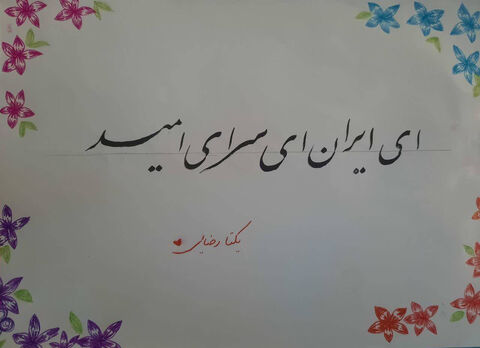 ای ایران ای سرای امید
یکتا رضایی